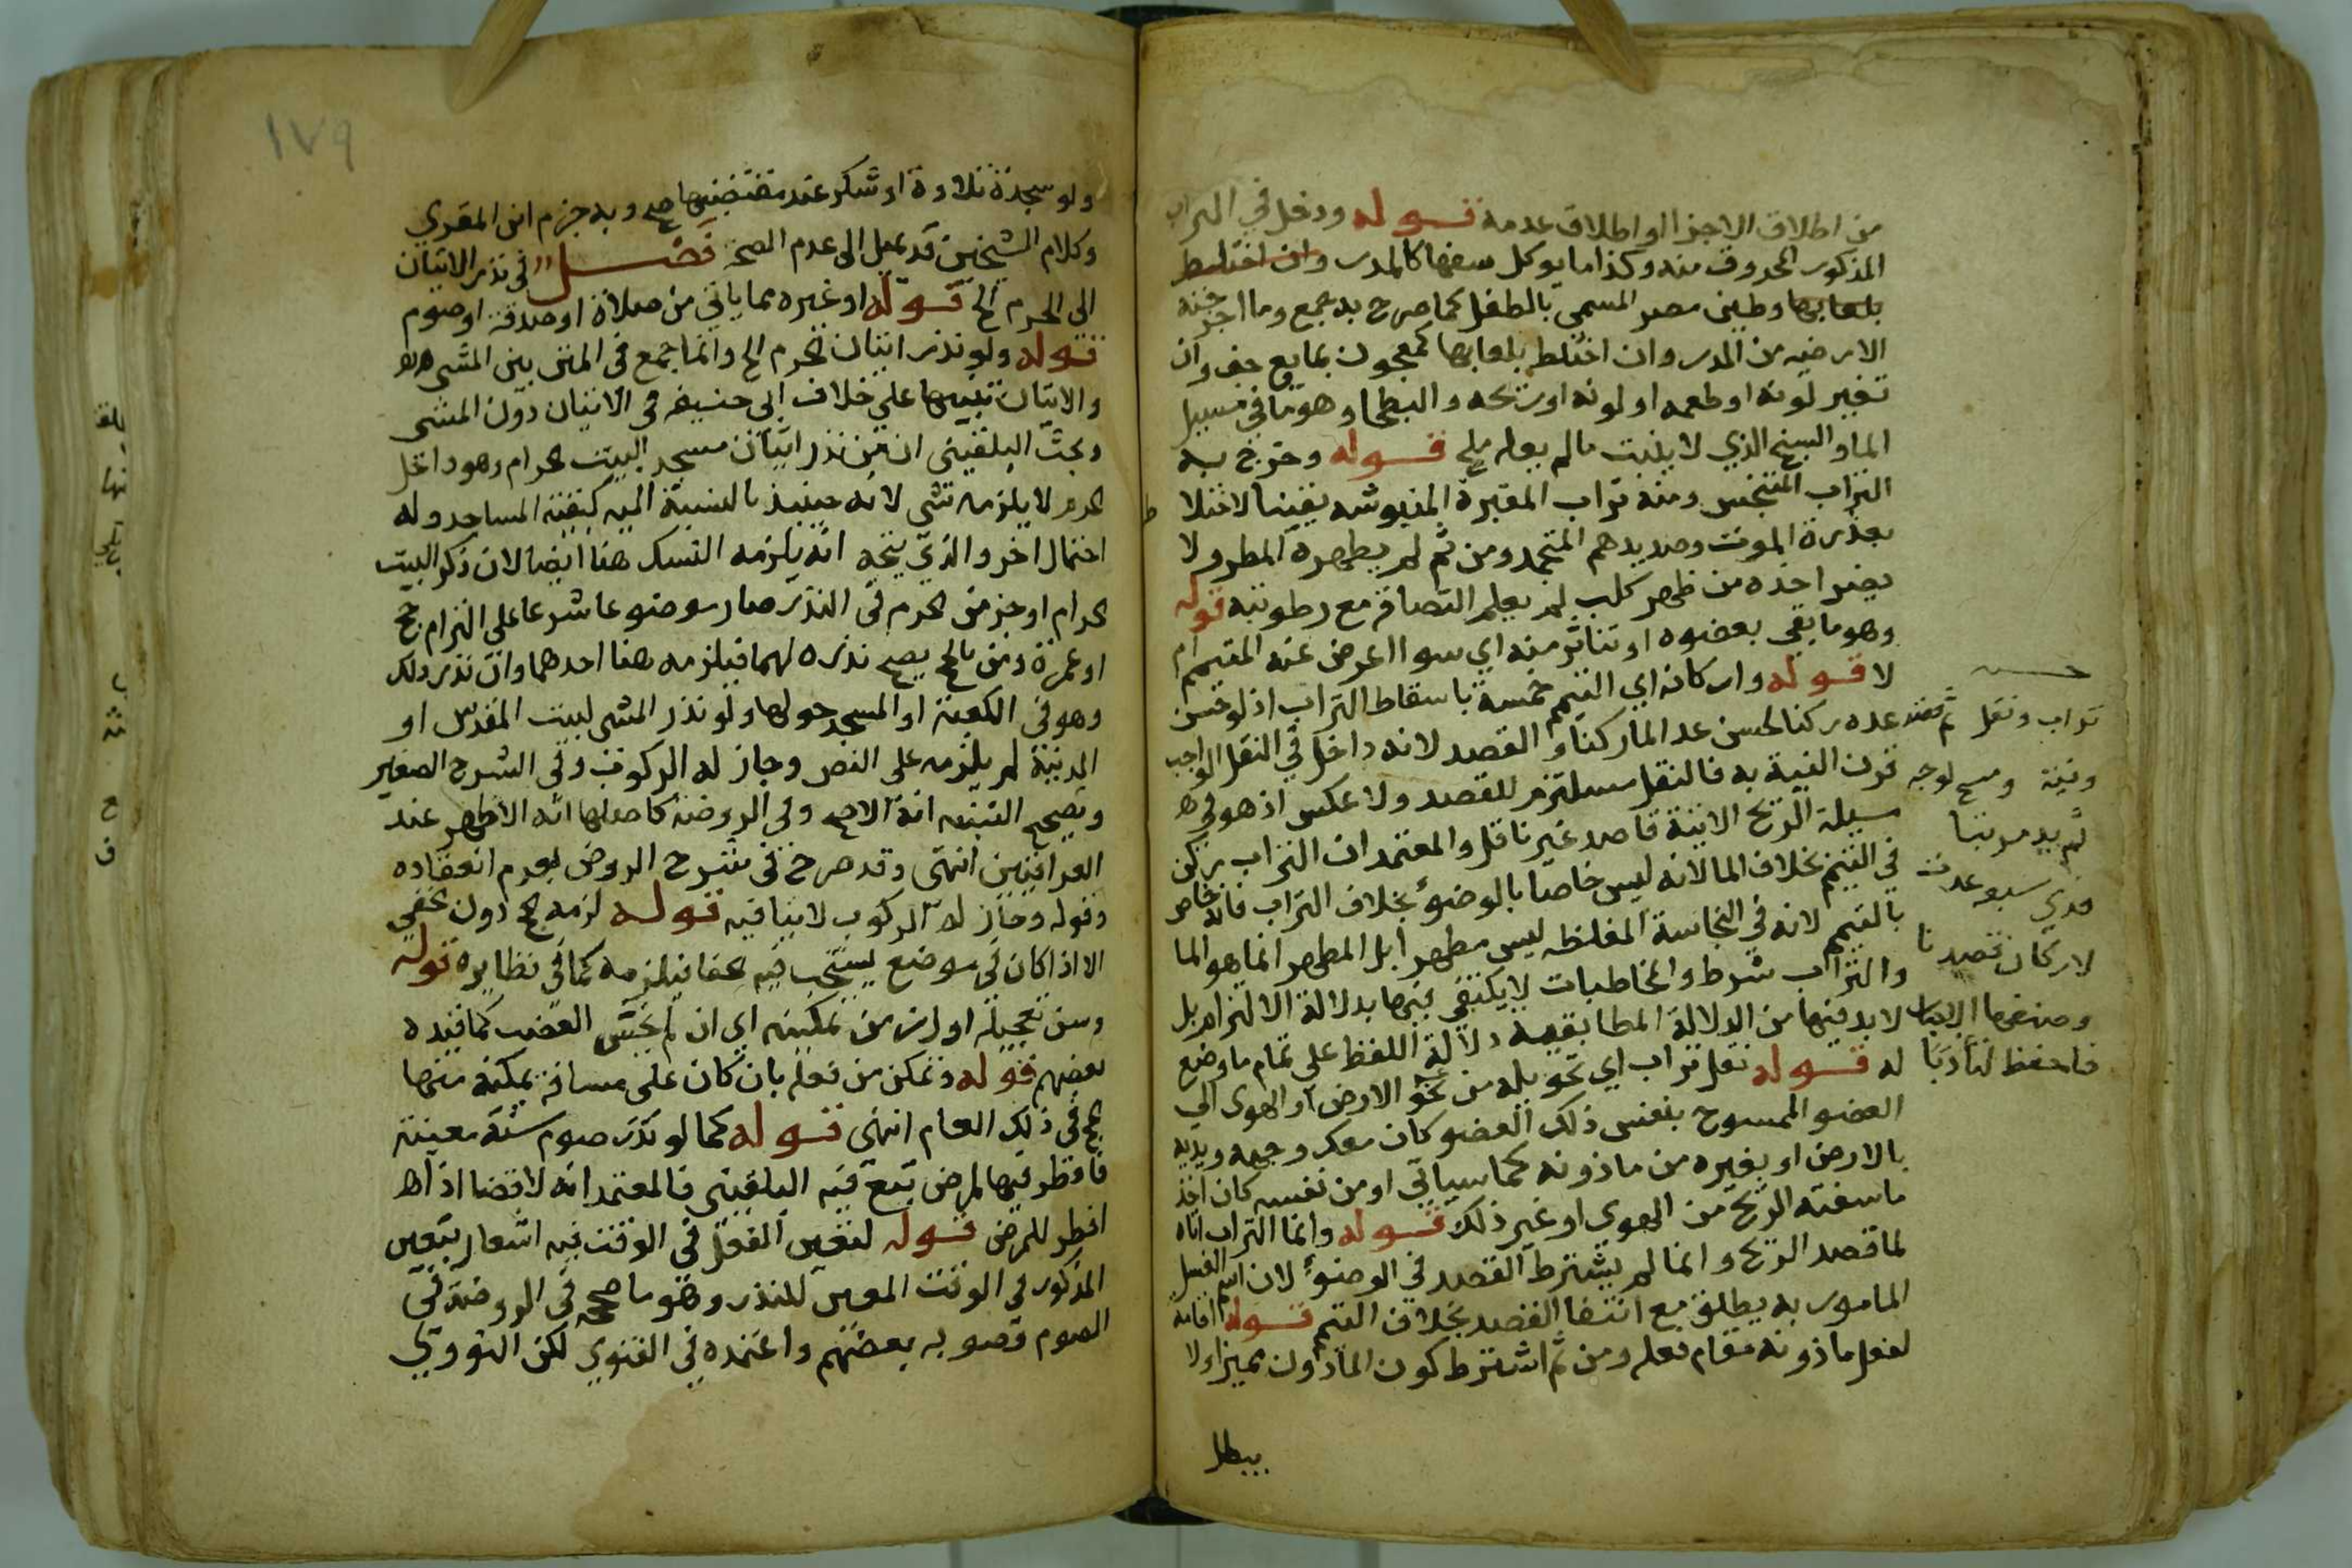 من اطلاق الاجزا او اطلاق عدمه قوله ودخل في التراب
المذكور المحروق منه وكذا ما يوكل سفها كالمدر وان اختلط
بلعابها وطين مصر المسمى بالطفل كما صرح به جمع وما اخرجته
الارضيه من المدر وان اختلط بلعابها كمعجون بمايع جف وان
تغير لونه او طعمه او لونه او ريحه والبطحا وهو ما في مسيل
الما والسبخ الذي لا ينبت ما لم يعله ملح قوله وخرج به
التراب المتنجس ومنه تراب المقبرة المنبوشه يقينا لاختلا
بعذرة الموتى وصديدهم المتجمد ومن ثم لم يطهره المطر ولا
يضر اخذه من ظهر كلب لم يعلم التصاقه مع رطوبته قوله
وهو ما بقي بعضوه او تناثر منه اي سوا اعرض عنه المتيمم ام
لا قوله واركانه اي التيمم خمسة باسقاط التراب اذ لو حسن
عده ركنا لحسن عد الما ركنا والقصد لانه داخل في النقل الواجب
قرن النية به فالنقل مستلزم للقصد ولا عكس اذ هو في
مسيلة الريح الاتية قاصد غير ناقل والمعتمد ان التراب ركن
في التيمم بخلاف الما لانه ليس خاصا بالوضوء بخلاف التراب فانه خاص
بالتيمم لانه في النجاسة المغلظه ليس مطهرا بل المطهر انما هو الما
والتراب شرط والمخاطبات لا يكتفى فيها بدلالة الالتزام بل
لا بد فيها من الدلالة المطابقيه دلالة اللفظ على تمام ما وضع
له قوله نقل تراب اي تحويله من نحو الارض او الهوى الي
العضو الممسوح بنفس ذلك العضو كان معك وجهه ويديه
بالارض او بغيره من ماذونه كما سياتي او من نفسه كان اخذ
ما سفته الريح من الهوى او غير ذلك قوله وانما التراب اتاه
لما قصد الريح وانما لم يشترط القصد في الوضوء لان اسم الغسل
المامور به يطلق مع انتفا القصد بخلاف التيمم قوله اقامة
لفعل ماذونه مقام فعله ومن ثم اشترط كون الماذون مميزا ولا
يبطل
تراب ونقل ثم قصد
ونية ومسح لوجه
ثم يد مرتبا
فذي سبع عدت
لاركان قصدنا
فاحفظ لتأدبا
١٧٩
ولو سجدة تلاوة او شكر عند مقتضيها صح وبه جزم ابن المقري
وكلام الشيخين قد يميل الى عدم الصحة فصل في نذر الاتيان
الى الحرم الخ قوله او غيره مما ياتي من صلاة او صدقة او صوم
قوله ولو نذر اتيان الحرم الخ وانما جمع في المتن بين المشي
والاتيان تنبيها على خلاف ابي حنيفه في الاتيان دون المشي
وبحث البلقيني ان من نذر اتيان مسجد البيت الحرام وهو داخل
الحرم لا يلزمه شي لانه حينيذ بالنسبة اليه كبقية المساجد وله
احتمال اخر والذي يتجه انه يلزمه النسك هنا ايضا لان ذكر البيت
الحرام او جز من الحرم في النذر صار موضوعا شرعا على التزام حج
او عمرة ومن بالحرم يصح نذره لهما فيلزمه هنا احدهما وان نذر ذلك
وهو في الكعبة او المسجد حولها ولو نذر المشي لبيت المقدس او
المدينة لم يلزمه على النص وجاز له الركوب وفي الشرح الصغير
وتصحيح التنبيه انه الاصح وفي الروضة كاصلها انه الاظهر عند
العراقيين انتهى وقد صرح في شرح الروض بعدم انعقاده
وقوله وجاز له الركوب لا ينافيه قوله لزمه حج دون حفي
الا اذا كان في موضع يستحب فيه حفا فيلزمه كما في نظايره قوله
وسن تعجيله اول زمن تمكينه اي ان لم يخش العضب كما قيده
بعضهم قوله وتمكن من فعله بان كان على مسافة يمكنه منها
الحج في ذلك العام انتهى قوله كما لو نذر صوم سنة معينة
فافطر فيها لمرض تبع فيه البلقيني فالمعتمد انه لا قضا اذا
افطر للمرض قوله لتعين الفعل في الوقت فيه اشعار بتعين
المذكور في الوقت المعين للنذر وهو ما صححه في الروضة في
الصوم وصوبه بعضهم واعتمده في الفتوى لكن النووي